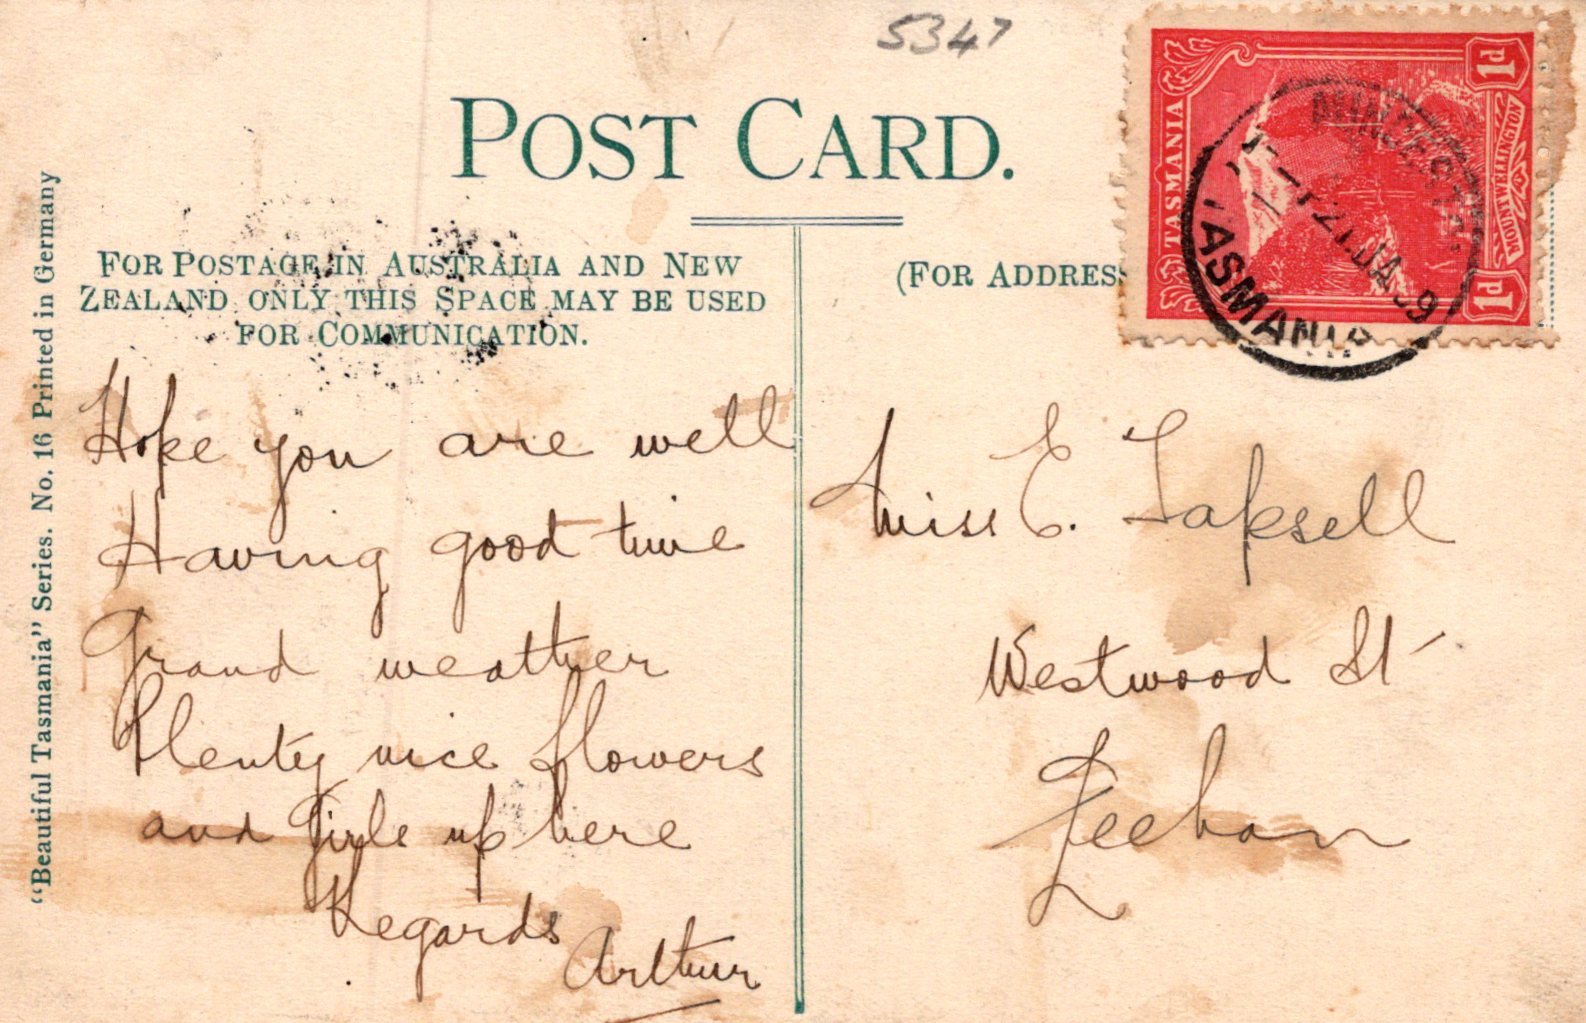 5347
POST CARD.
FOR POSTAGE IN AUSTRALIA AND NEW
ZEALAND ONLY THIS SPACE MAY BE USED
FOR COMMUNICATION.
(FOR ADDRESS
TASMANIA
1d
MOUNT WELLINGTON
1d
21 JA 09
TASMANIA
"Beautiful Tasmania" Series. No. 16 Printed in Germany
Hope you are well
Having good time
Grand weather
Plenty nice flowers
and Girls up here
Regards
Arthur
Miss E. Tapsell
Westwood St
Zeehan